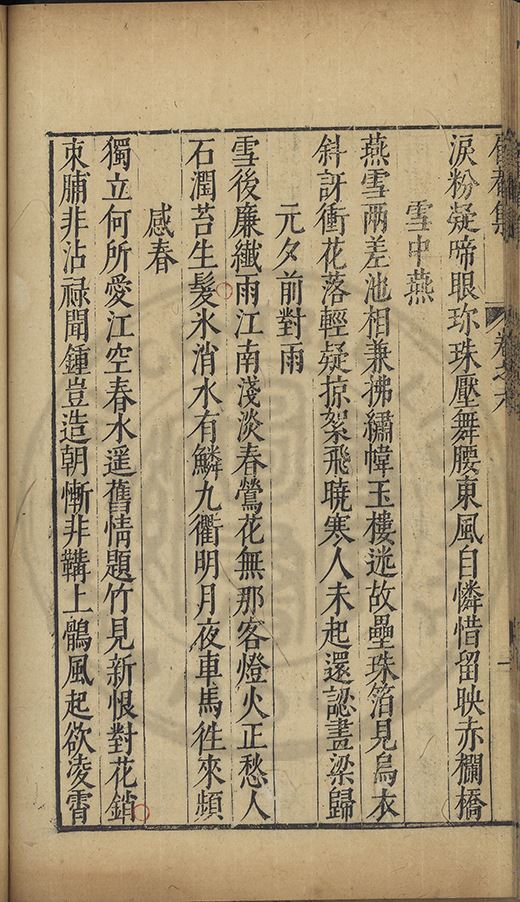 卷之六
淚粉疑啼眼珎珠壓舞腰東風自憐惜留映赤欄橋
雪中燕
燕雪兩差池相兼拂繡幃玉樓迷故壘珠箔見烏衣
斜訝衝花落輕疑掠絮飛曉寒人未起還認畫梁歸
元夕前對雨
雪後廉纖雨江南淺淡春鶯花無那客燈火正愁人
石潤苔生髮氷消水有鱗九衢明月夜車馬徃來頻
感春
獨立何所愛江空春水遥舊情題竹見新恨對花銷
束脯非沾祿聞鍾豈造朝慚非鞲上鶻風起欲凌霄